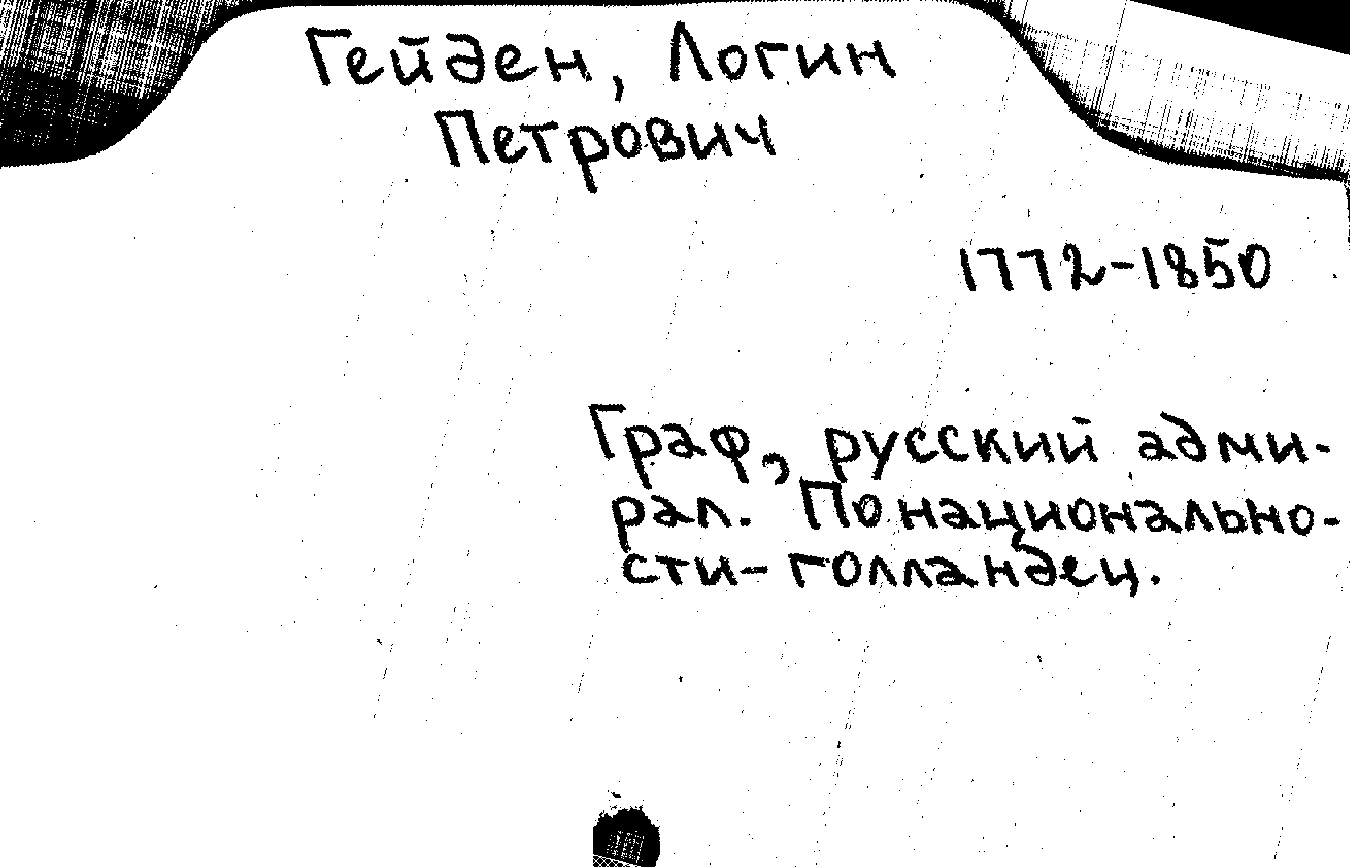 Гейден, Логин
Петрович
1772-1850
Граф, русский адми-
рал. По национально-
сти - голландец.